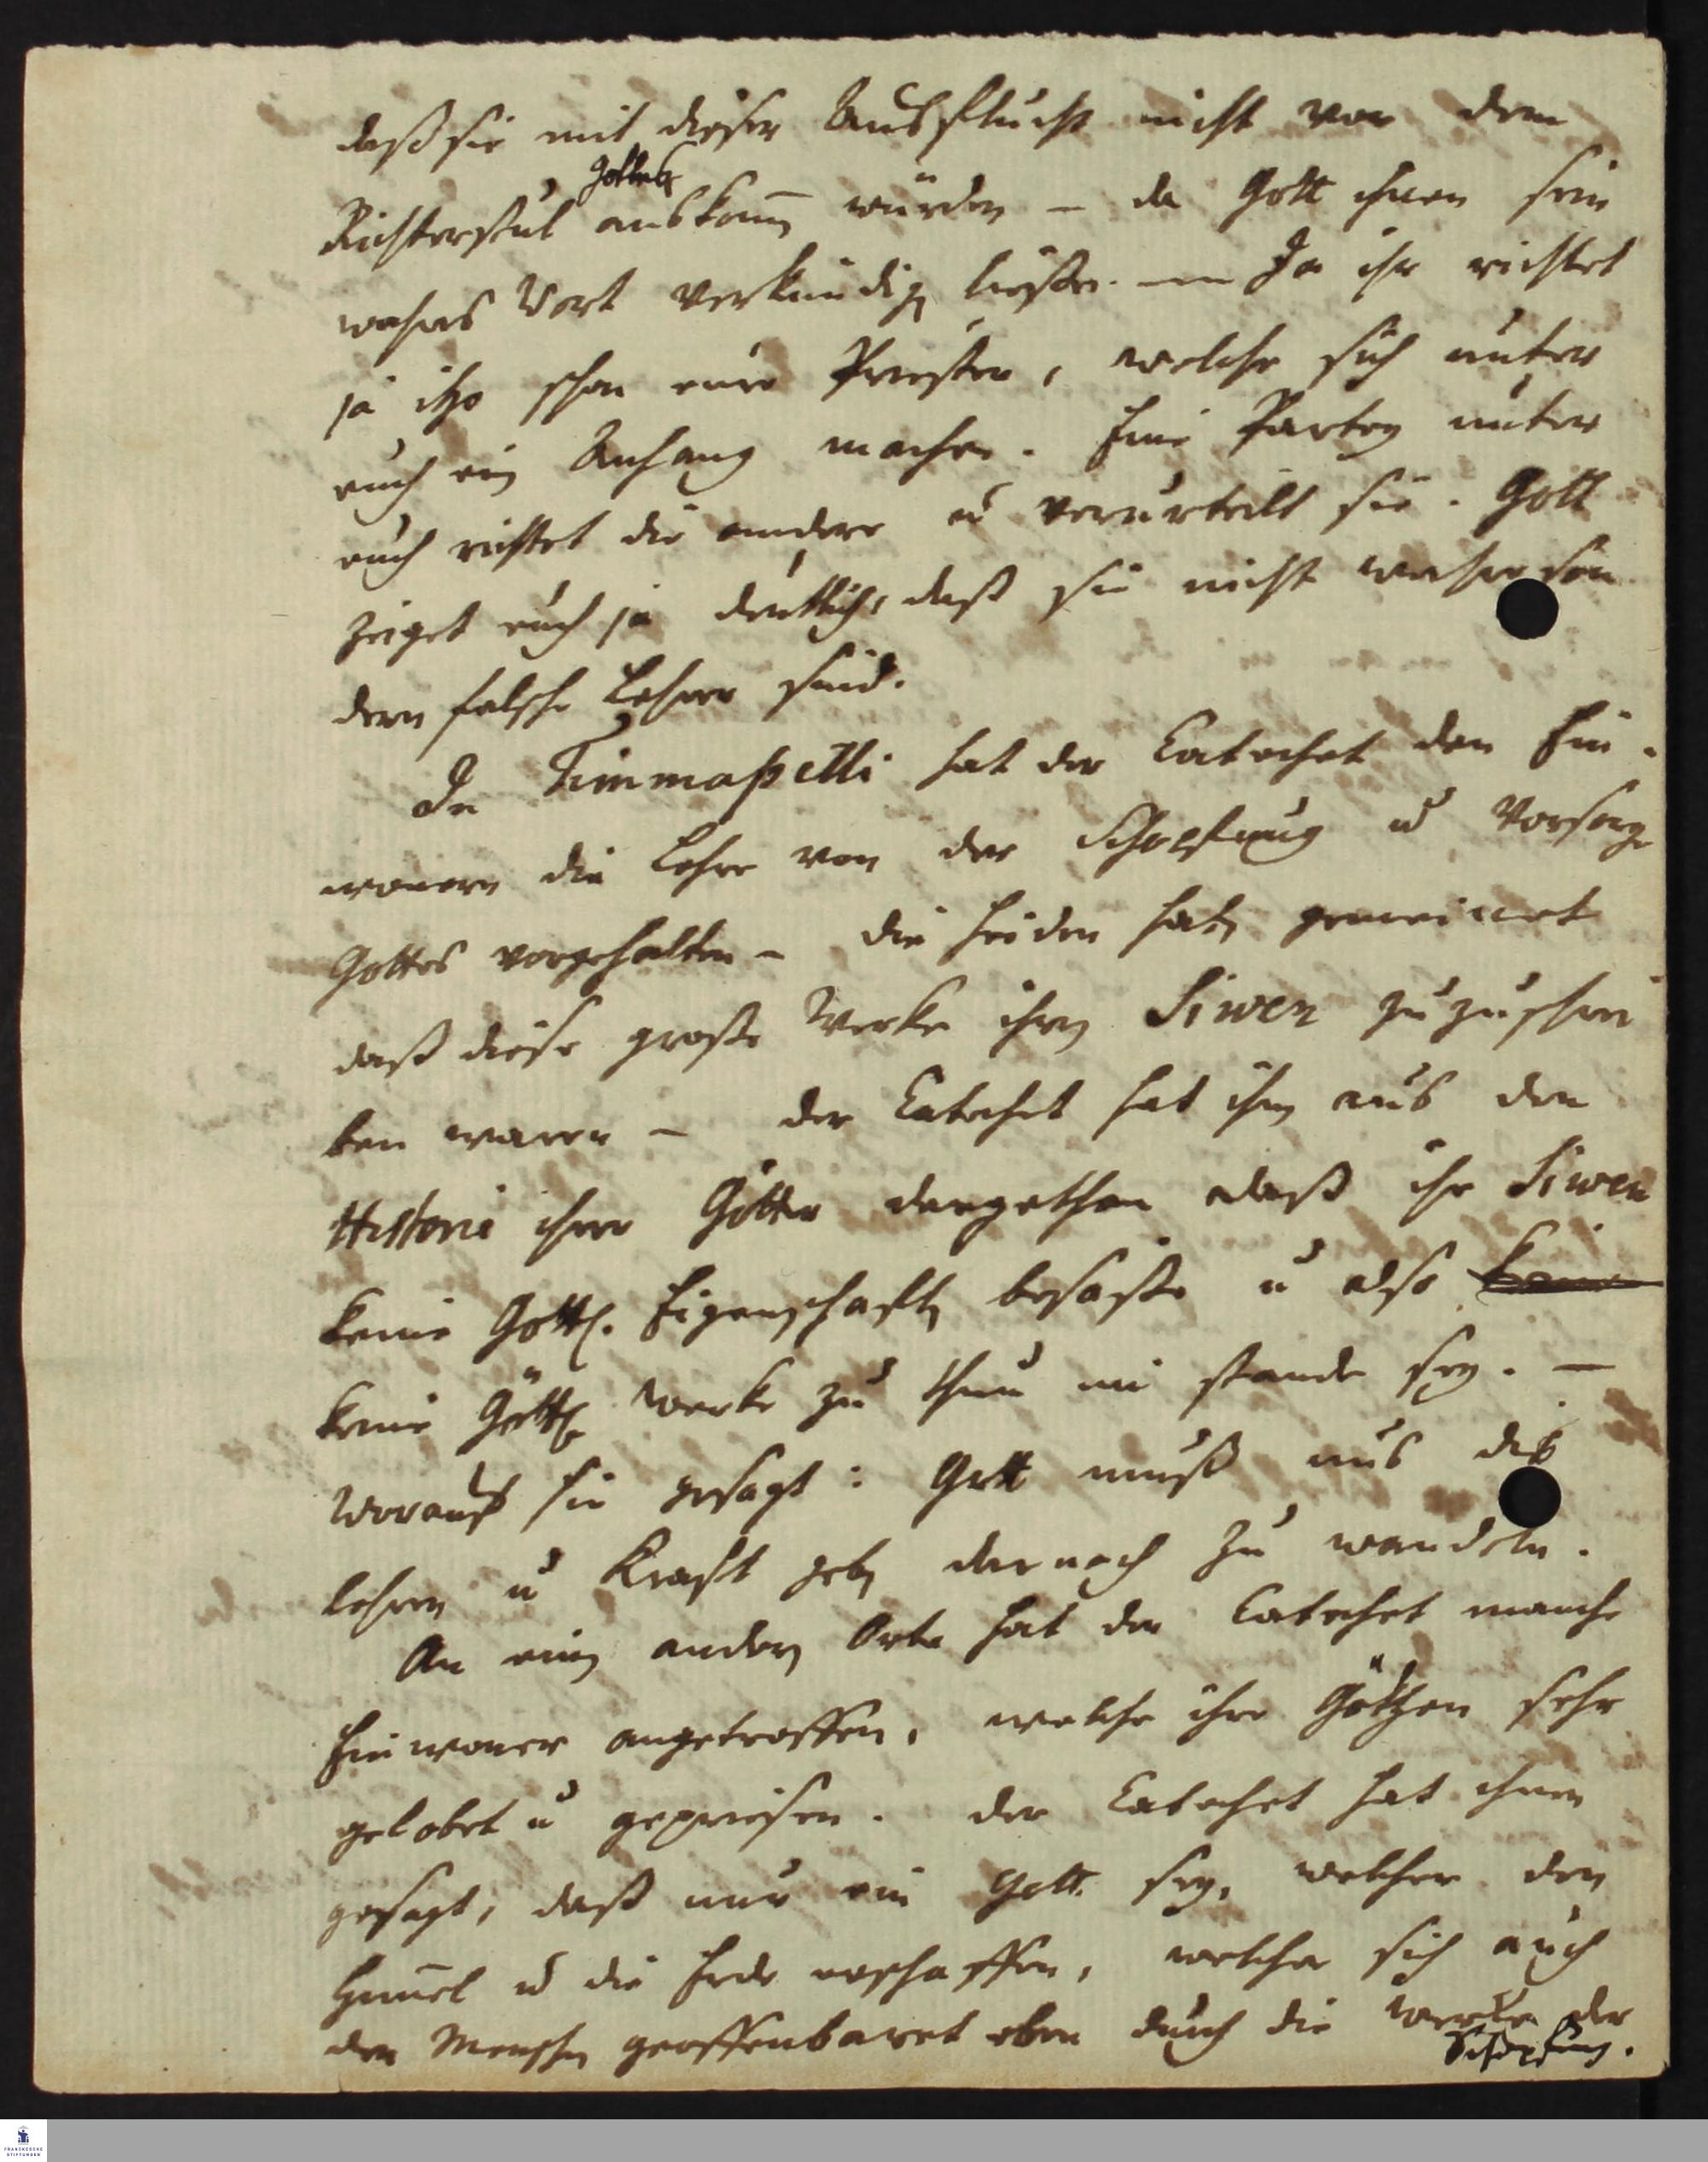 daß sie mit dieser Ausflucht nicht vor dem
Gottes
Richterstul auskom̅en würden – da Gott ihnen sein
wahres Wort verkündigen liesse. — Ja ihr richtet
ja itzo schon eure Priester, welche sich unter
euch ein Anhang machen. Eine Partey unter
euch richtet die andere u verurteilt sie. Gott
zeiget euch ja deutlich, daß sie nicht wahre son
dern falsche Lehrer sind.
In Tim̅mapetti hat der Catechet den Ein-
wonern die Lehre von der Schöpfung u Vorsorge
Gottes vorgehalten – die Heiden haben gemeinet
daß diese grosse Werke ihren Siwen zuzuschrei
ben waren – der Catechet hat ihnen aus den
Historie ihrer Götter dargethan daß ihr Siwen
keine Göttl. Eigenschaften besässe u also
keine Göttl. Werke zu thun im stande sey. –
Worauf sie gesagt: Gott muß uns dis
lehren u Kraft geben darnach zu wandeln.
An einen andern Orte hat der Catechet manche
Einwoner angetroffen, welche ihre Götzen sehr
gelobet u gepriesen. der Catechet hat ihnen
gesagt, daß nur ein Gott sey, welcher den
Him̅el u die Erde erschaffen, welcher sich auch
den Menschen geoffenbaret eben durch die Werke der
Schöpfung.
FRANCKESCHE
STIFTUNGEN